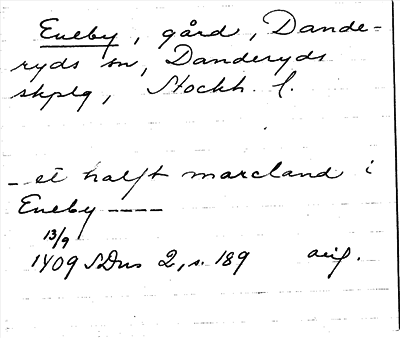 Eneby, gård, Dande-
ryds sn, Danderyds
skplg, Stockh. l.
_ et halft marcland i
Eneby ----
13/9
1409 SDns 2, s. 189 avs.